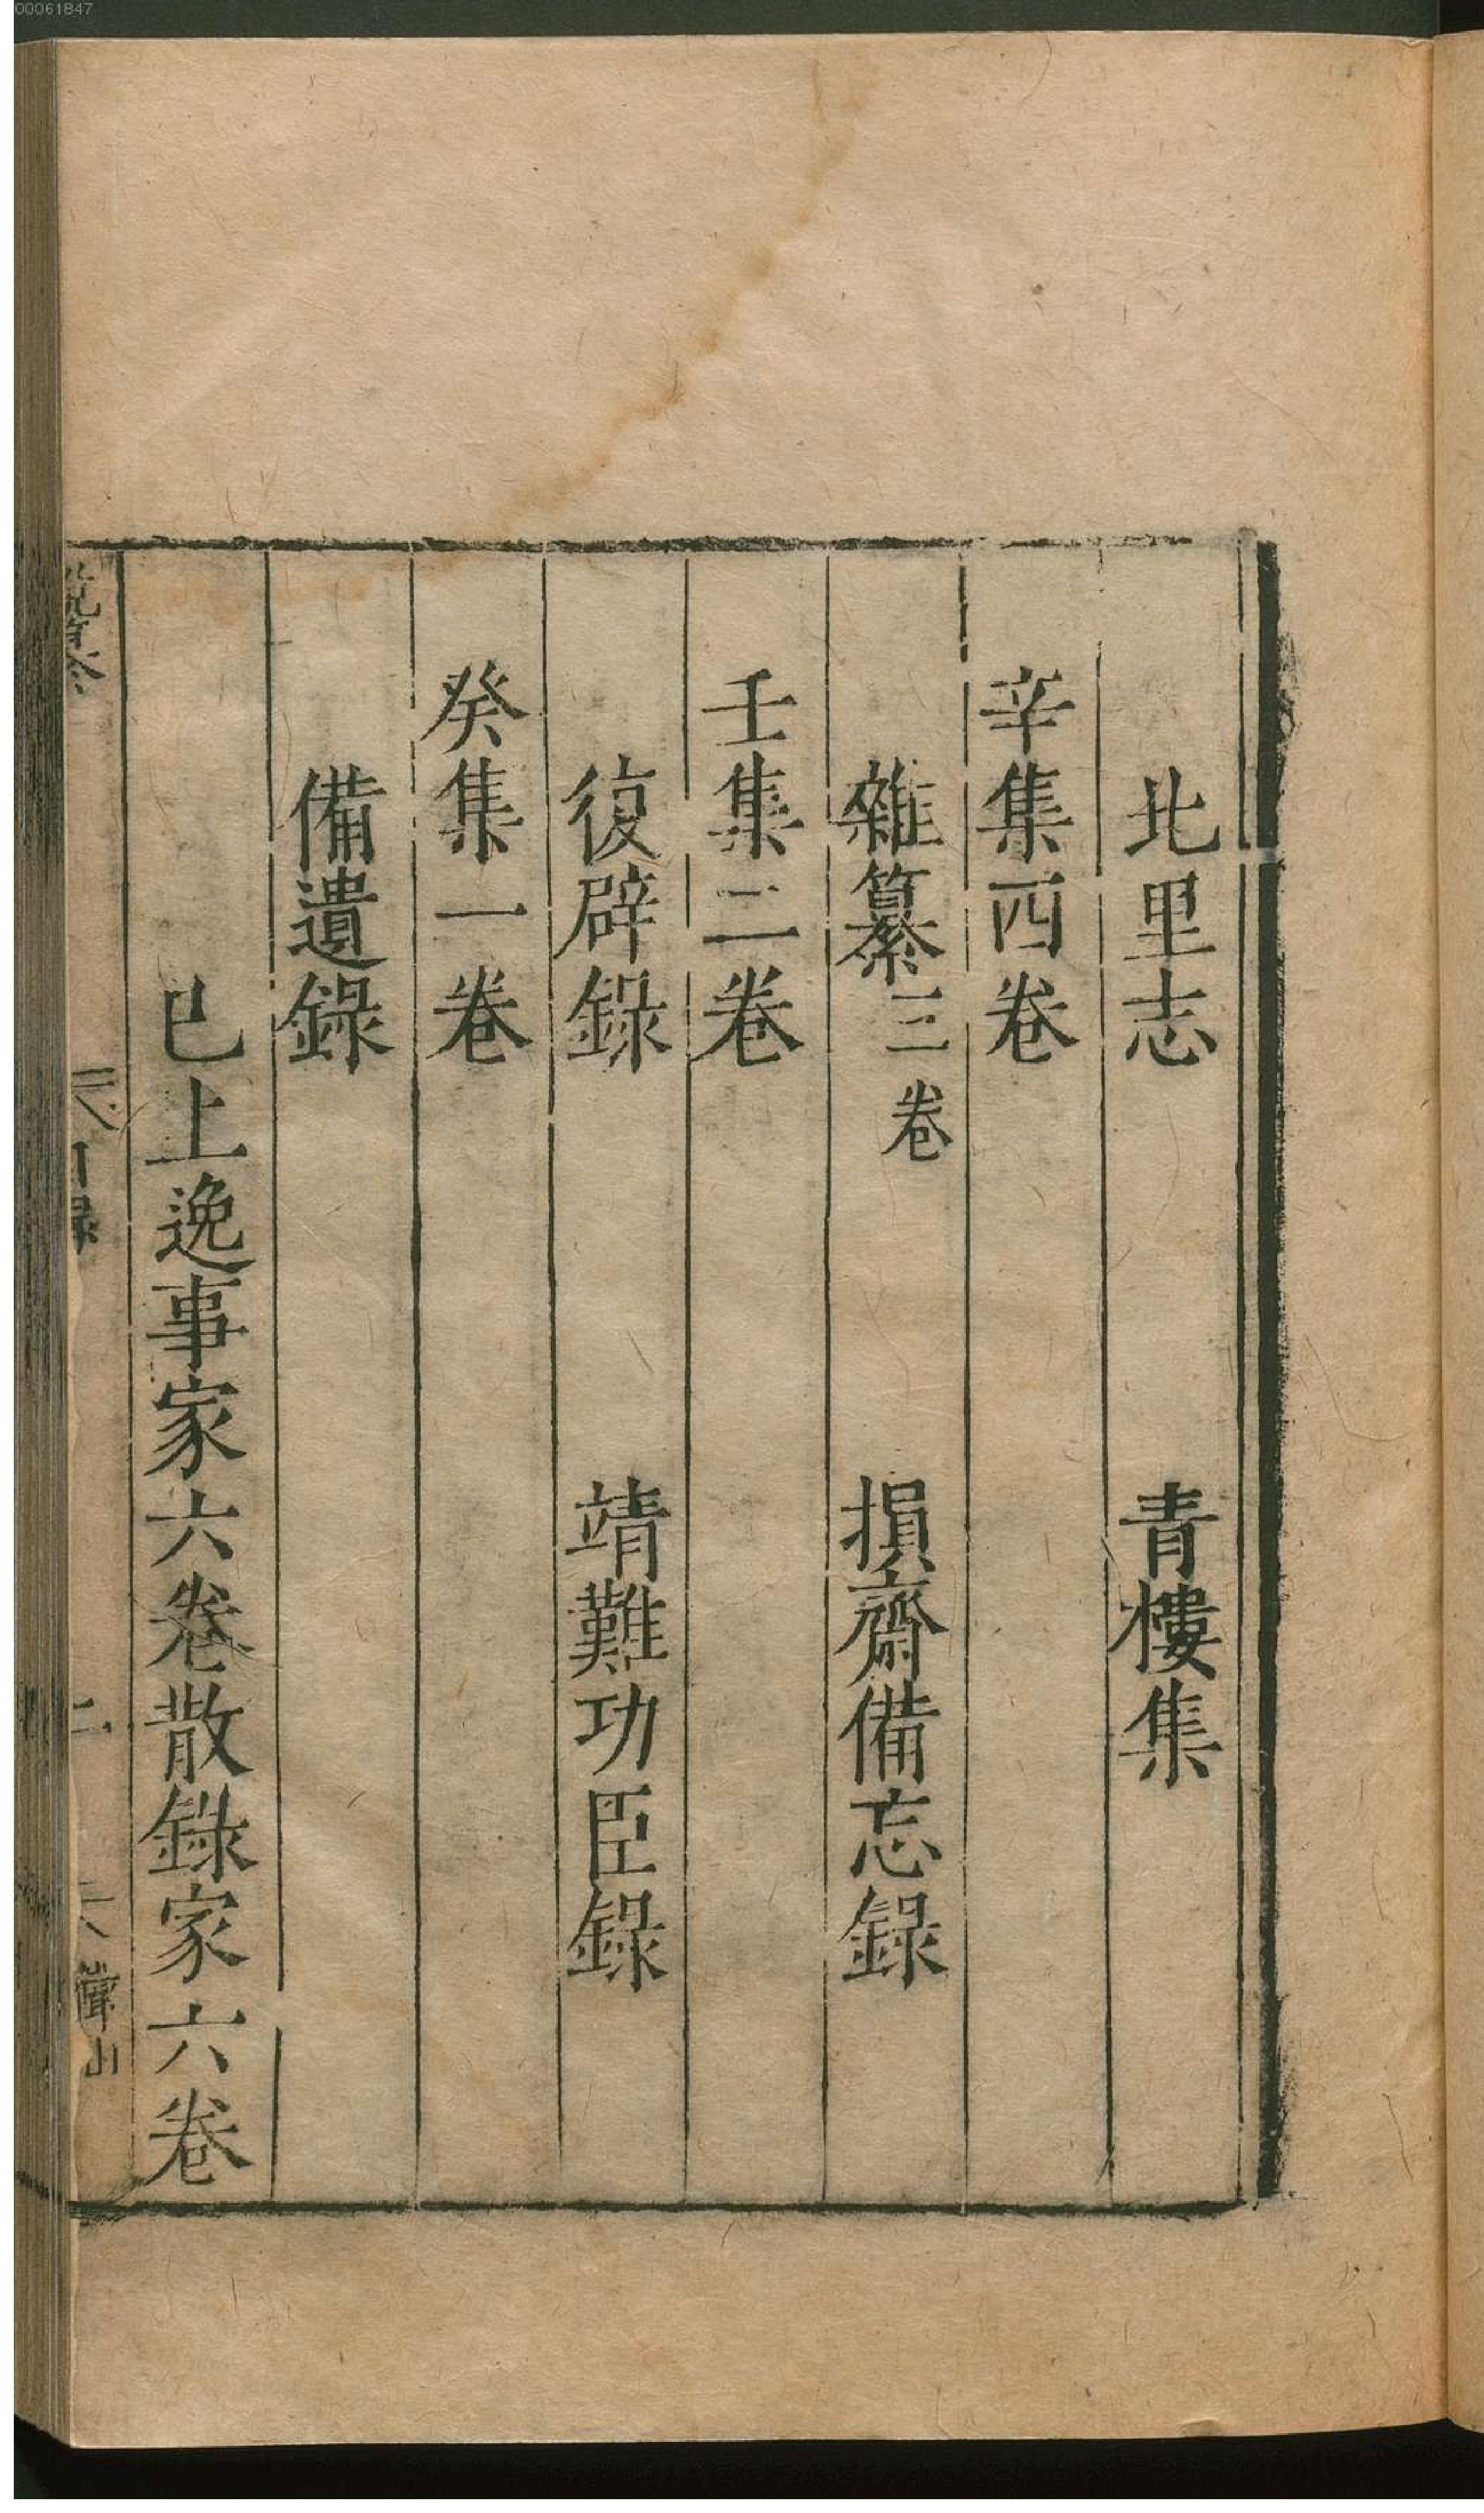 00061847
北里志 青樓集
辛集四卷
雜纂三卷 損齋備忘錄
壬集二卷
復辟錄 靖難功臣錄
癸集一卷
備遺錄
已上逸事家六卷散錄家六卷